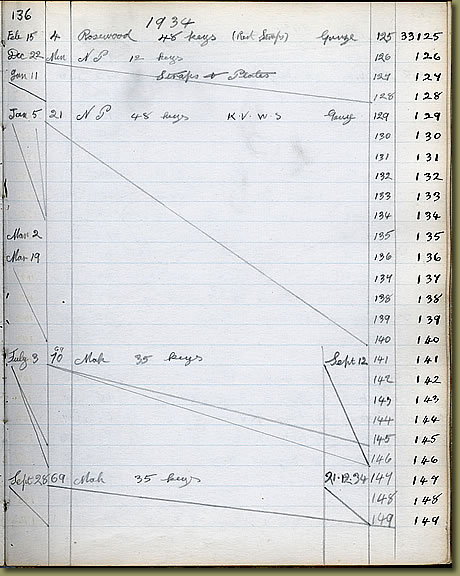 136
1934
Feb 15 4 Rosewood 48 keys (Red Straps) Gauze 125 33125
Dec 22 Min N P 12 keys 126 126
Jan 11 Straps & Plates 127 127
128 128
Jan 5 21 N P 48 keys K.V.W.S Gauze 129 129
130 130
131 131
132 132
133 133
134 134
Mar 2 135 135
Mar 19 136 136
137 137
138 138
139 139
140 140
July 3 70 Mah 35 keys Sept 12 141 141
142 142
143 143
144 144
145 145
146 146
Sept 28 69 Mah 35 keys 21.12.34 147 147
148 148
149 149